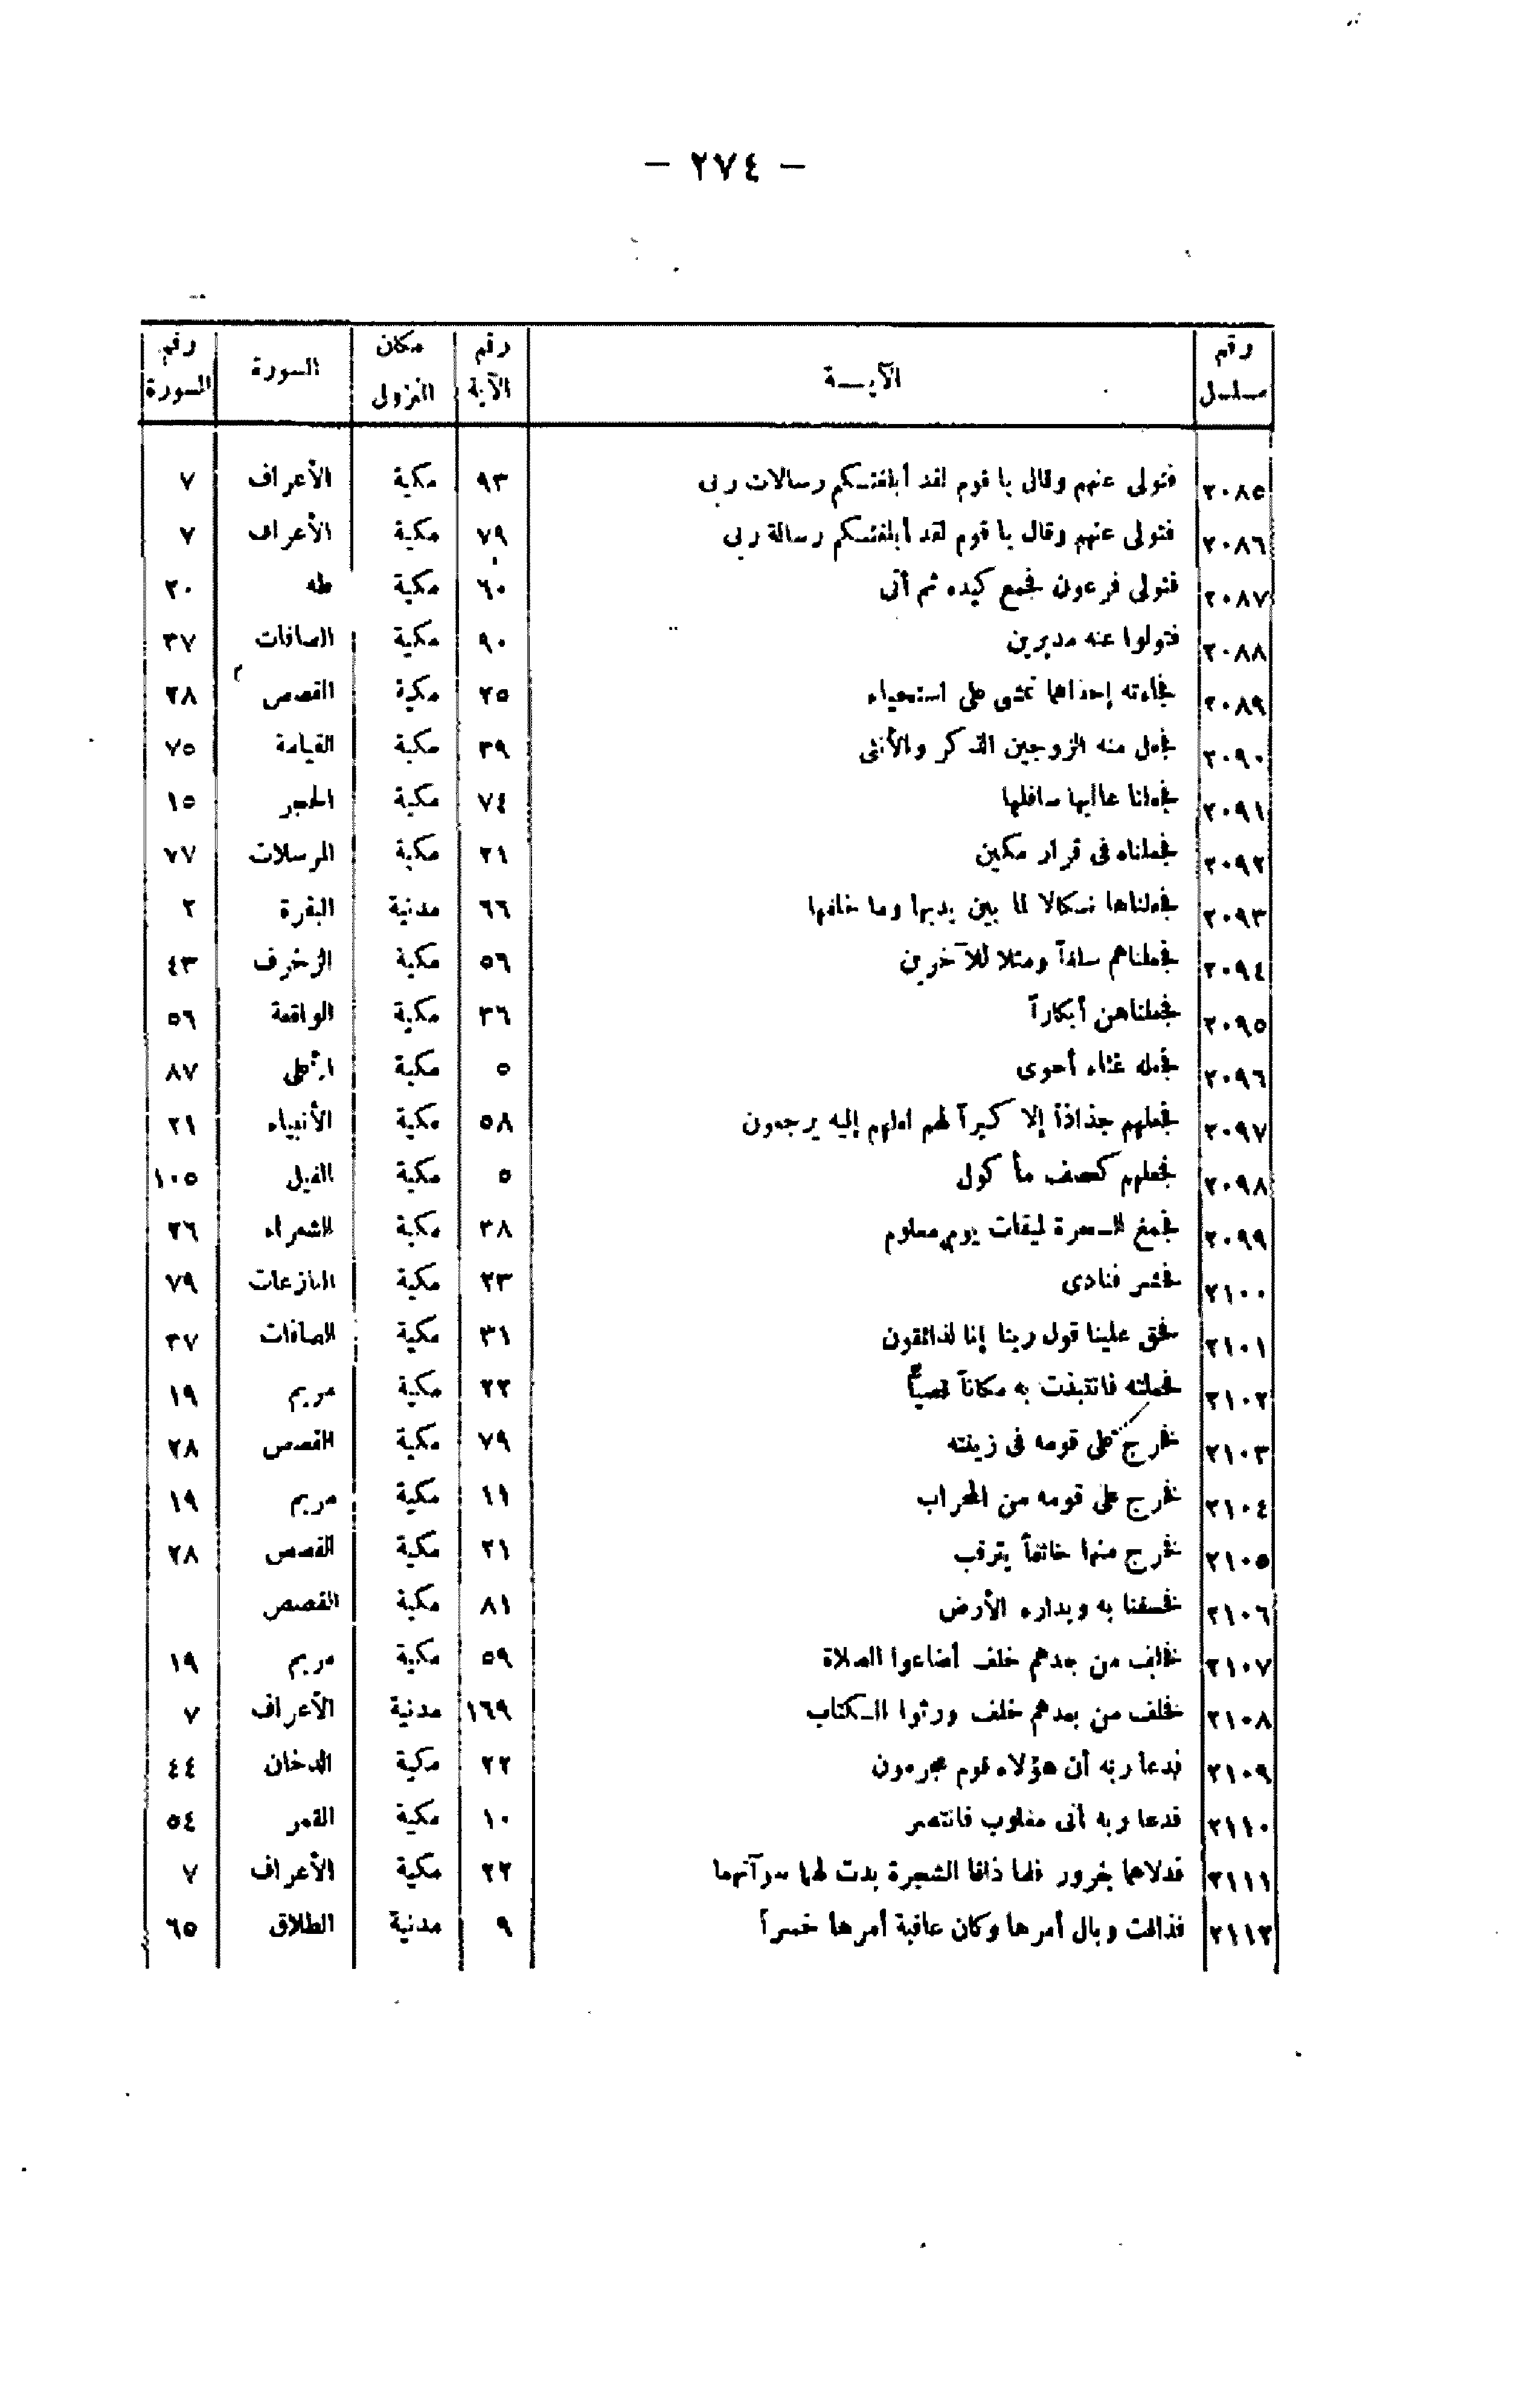 — ٢٧٤ —
رقم مسلسل | الآيـــة | رقم الآية | مكان النزول | السورة | رقم السورة
٢٠٨٥ | فتولى عنهم وقال يا قوم لقد أبلغتـكم رسالات ربى | ٩٣ | مكية | الأعراف | ٧
٢٠٨٦ | فتولى عنهم وقال يا قوم لقد أبلغتـكم رسالة ربى | ٧٩ | مكية | الأعراف | ٧
٢٠٨٧ | فتولى فرعون فجمع كيده ثم أتى | ٦٠ | مكية | طه | ٢٠
٢٠٨٨ | فتولوا عنه مدبرين | ٩٠ | مكية | الصافات | ٣٧
٢٠٨٩ | فجاءته إحداهما تمشى على استحياء | ٢٥ | مكية | القصص | ٢٨
٢٠٩٠ | فجعل منه الزوجين الذكر والأنثى | ٣٩ | مكية | القيامة | ٧٥
٢٠٩١ | فجعلنا عاليها سافلها | ٧٤ | مكية | الحجر | ١٥
٢٠٩٢ | فجعلناه فى قرار مكين | ٢١ | مكية | المرسلات | ٧٧
٢٠٩٣ | فجعلناها نـكالا لما بين يديها وما خلفها | ٦٦ | مدنية | البقرة | ٢
٢٠٩٤ | فجعلناهم سلفاً ومثلا للآخرين | ٥٦ | مكية | الزخرف | ٤٣
٢٠٩٥ | فجعلناهن أبكاراً | ٣٦ | مكية | الواقعة | ٥٦
٢٠٩٦ | فجعله غثاء أحوى | ٥ | مكية | الأعلى | ٨٧
٢٠٩٧ | فجعلهم جذاذاً إلا كبيراً لهم لعلهم إليه يرجعون | ٥٨ | مكية | الأنبياء | ٢١
٢٠٩٨ | فجعلهم كعصف مأكول | ٥ | مكية | الفيل | ١٠٥
٢٠٩٩ | فجمع السحرة لميقات يوم معلوم | ٣٨ | مكية | الشعراء | ٢٦
٢١٠٠ | فحشر فنادى | ٢٣ | مكية | النازعات | ٧٩
٢١٠١ | فحق علينا قول ربنا إنا لذائقون | ٣١ | مكية | الصافات | ٣٧
٢١٠٢ | فحملته فانتبذت به مكاناً قصيًّا | ٢٢ | مكية | مريم | ١٩
٢١٠٣ | فخرج على قومه فى زينته | ٧٩ | مكية | القصص | ٢٨
٢١٠٤ | فخرج على قومه من المحراب | ١١ | مكية | مريم | ١٩
٢١٠٥ | فخرج منها خائفاً يترقب | ٢١ | مكية | القصص | ٢٨
٢١٠٦ | فخسفنا به وبداره الأرض | ٨١ | مكية | القصص
٢١٠٧ | فخلف من بعدهم خلف أضاعوا الصلاة | ٥٩ | مكية | مريم | ١٩
٢١٠٨ | فخلف من بعدهم خلف ورثوا الـكتاب | ١٦٩ | مدنية | الأعراف | ٧
٢١٠٩ | فدعا ربه أن هؤلاء قوم مجرمون | ٢٢ | مكية | الدخان | ٤٤
٢١١٠ | فدعا ربه أنى مغلوب فانتصر | ١٠ | مكية | القمر | ٥٤
٢١١١ | فدلاهما بغرور فلما ذاقا الشجرة بدت لهما سوآتهما | ٢٢ | مكية | الأعراف | ٧
٢١١٢ | فذاقت وبال أمرها وكان عاقبة أمرها خسراً | ٩ | مدنية | الطلاق | ٦٥